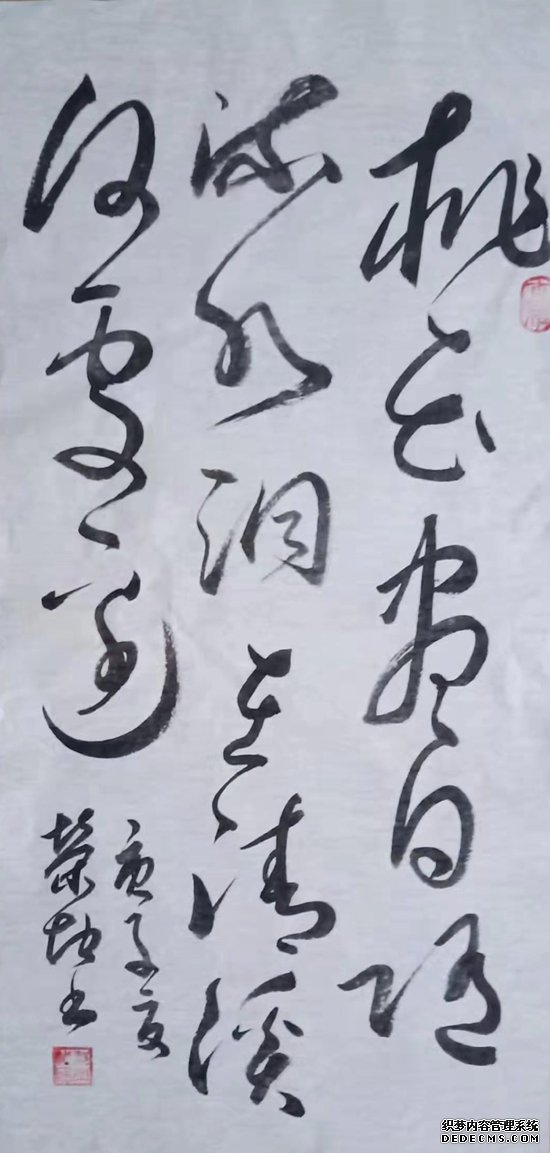 桃花尽日随
流水洞在清溪
何处边
庚子夏
荣坤书
织梦内容管理系统
DEDECMS.COM